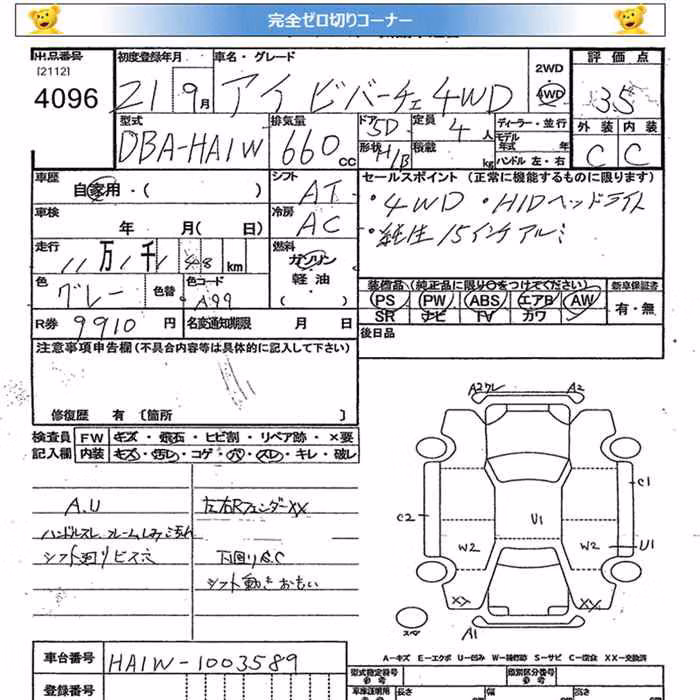 完全ゼロ切りコーナー
出品番号 初度登録年月 車名・グレード 評価点
[2112]
4096 21 9月 アイ ビバーチェ 4WD 2WD 4WD 3.5
型式 排気量 ドア 5D 定員 4人 ディーラー・並行 外装 内装
DBA-HA1W 660cc 形状 H/B 積載 kg モデル年式 年式 ハンドル左・右 C C
車歴 シフト セールスポイント (正常に機能するものに限ります)
自家用・( ) AT ・4WD ・HIDヘッドライト
車検 冷房 ・純正15インチアルミ
年 月( 日) AC
走行 燃料
11万1千148km ガソリン 軽油
色 色替 色コード ( ) 装備品(純正品に限り○をつけてください) 新車保証書
グレー A99 PS PW ABS エアB AW 有・無
SR ナビ TV カワ
R券 9910円 名変通知期限 月 日 後日品
注意事項申告欄(不具合内容等は具体的に記入して下さい)
修復歴 有〔箇所 〕
検査員 FW キズ・飛石・ヒビ割・リペア跡・×要
記入欄 内装 キズ・汚レ・コゲ・穴・スレ・キレ・破レ
A.U 左右Rフェンダーxx
ハンドルスレ フレームしみ汚れ
シフト廻りビス穴 下廻りS.C
シフト動きおもい
A2ワレ A2
C1
C2 U1
W2 W2 U1
XX XX
スペア A1
A-キズ E-エクボ U-凹み W-補修跡 S-サビ C-腐食 XX-交換済
車台番号 HA1W-1003589 型式指定番号 参考 類別区分番号 参考
登録番号 車検証明用 参考 長さ 幅 高さ